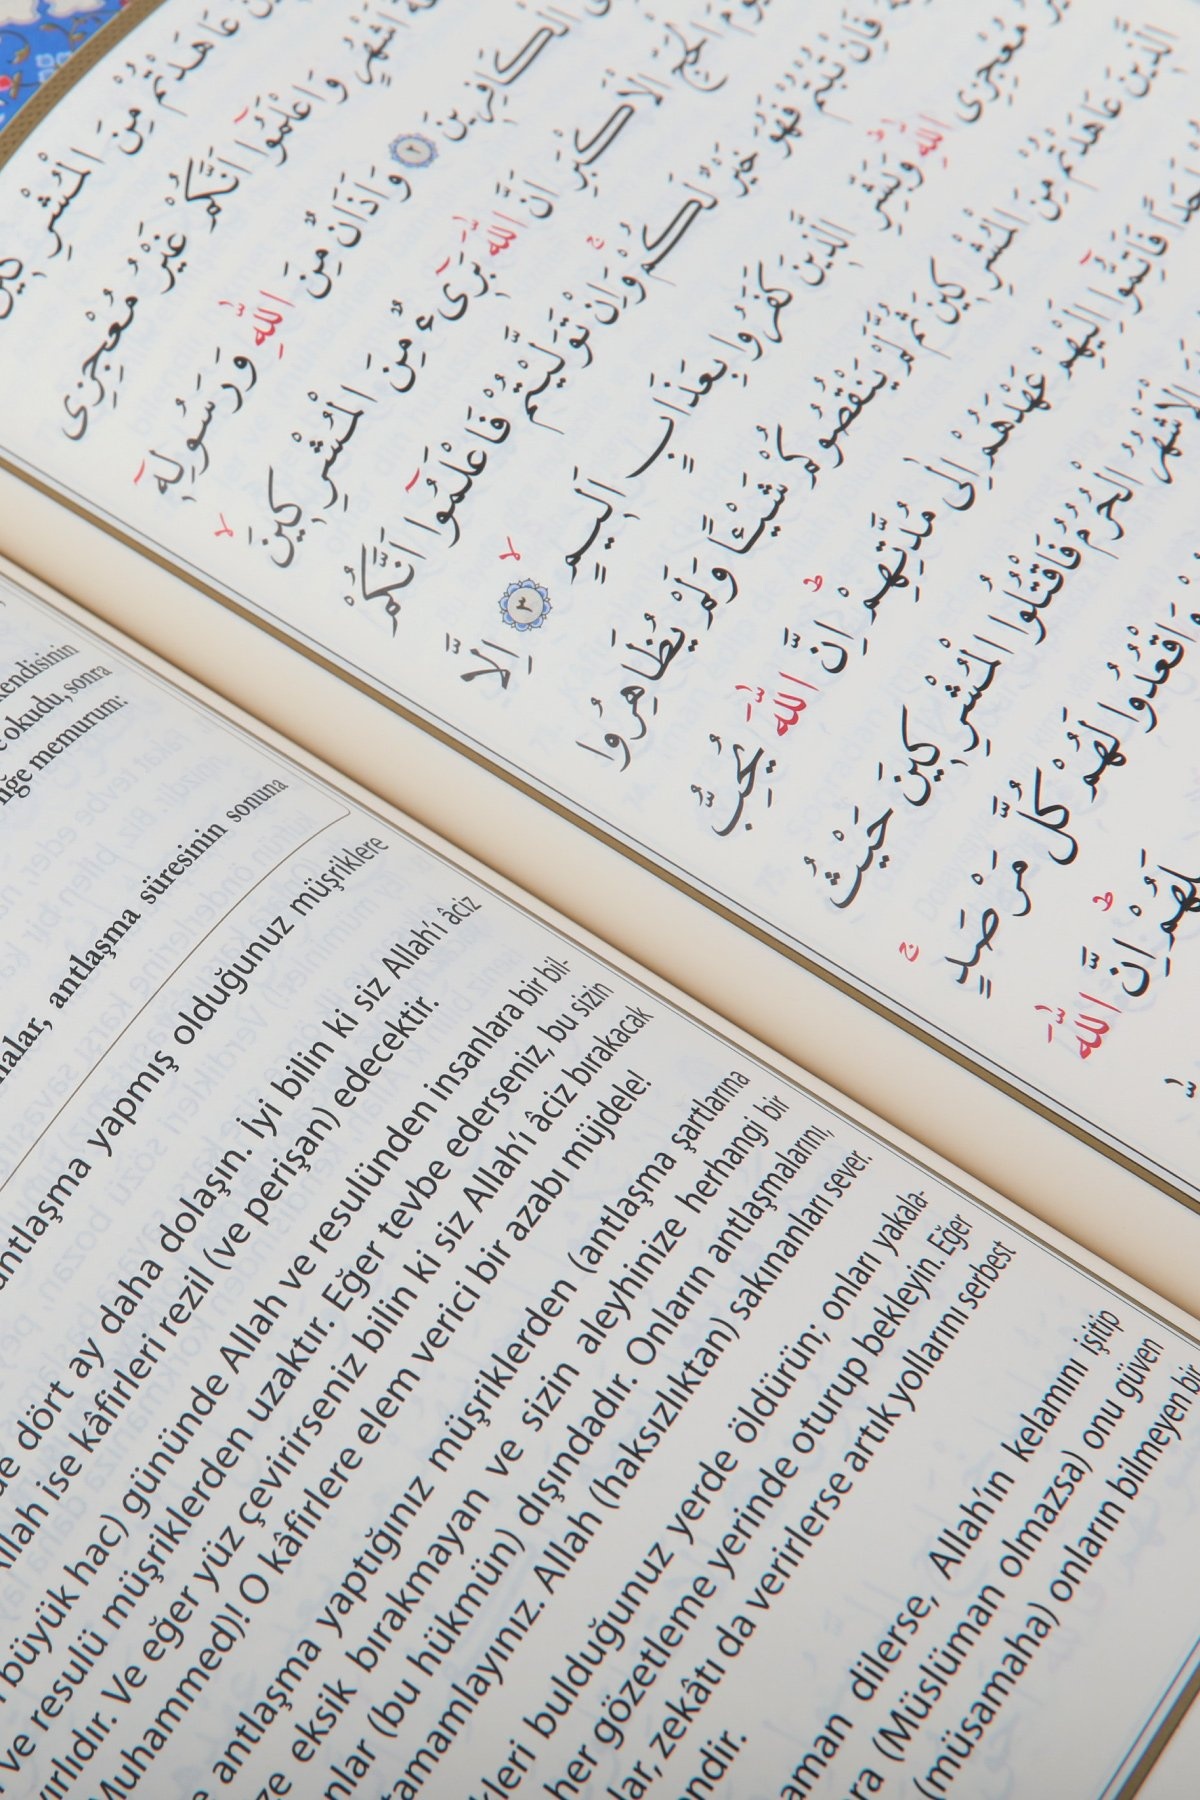 عَاهَدْتُمْ مِنَ الْمُشْرِكِينَ
وَاعْلَمُٓوا اَنَّكُمْ غَيْرُ مُعْجِزِى
الْكَافِرِينَ ٢ وَاَذَانٌ مِنَ اللّٰهِ وَرَسُولِهِٓ
الْحَجِّ الْاَكْبَرِ اَنَّ اللّٰهَ بَرِٓىءٌ مِنَ الْمُشْرِكِينَ
فَاِنْ تُبْتُمْ فَهُوَ خَيْرٌ لَكُمْ وَاِنْ تَوَلَّيْتُمْ فَاعْلَمُٓوا اَنَّكُمْ
مُعْجِزِى اللّٰهِ وَبَشِّرِ الَّذِينَ كَفَرُوا بِعَذَابٍ اَلِيمٍ ٣ اِلَّا
الَّذِينَ عَاهَدْتُمْ مِنَ الْمُشْرِكِينَ ثُمَّ لَمْ يَنْقُصُوكُمْ شَيْـًٔا وَلَمْ يُظَاهِرُوا
فَاَتِمُّٓوا اِلَيْهِمْ عَهْدَهُمْ اِلٰى مُدَّتِهِمْ اِنَّ اللّٰهَ يُحِبُّ
الْاَشْهُرُ الْحُرُمُ فَاقْتُلُوا الْمُشْرِكِينَ حَيْثُ
وَاقْعُدُوا لَهُمْ كُلَّ مَرْصَدٍ
اِنَّ اللّٰهَ
kendisinin
okudu, sonra
memurum:
antlaşma süresinin sonuna
antlaşma yapmış olduğunuz müşriklere
dört ay daha dolaşın. İyi bilin ki siz Allah'ı âciz
Allah ise kâfirleri rezil (ve perişan) edecektir.
büyük hac) gününde Allah ve resulünden insanlara bir bil-
ve resulü müşriklerden uzaktır. Eğer tevbe ederseniz, bu sizin
Ve eğer yüz çevirirseniz bilin ki siz Allah'ı âciz bırakacak
Muhammed)! O kâfirlere elem verici bir azabı müjdele!
antlaşma yaptığınız müşriklerden (antlaşma şartlarına
eksik bırakmayan ve sizin aleyhinize herhangi bir
(bu hükmün) dışındadır. Onların antlaşmalarını,
tamamlayınız. Allah (haksızlıktan) sakınanları sever.
bulduğunuz yerde öldürün; onları yakala-
her gözetleme yerinde oturup bekleyin. Eğer
zekâtı da verirlerse artık yollarını serbest
dilerse, Allah'ın kelamını işitip
(Müslüman olmazsa) onu güven
(müsamaha) onların bilmeyen bir